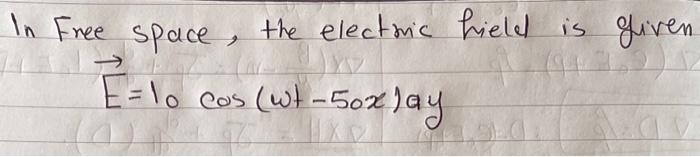 In Free space, the electric field is given
E⃗ = 10 cos (wt - 50x) ay